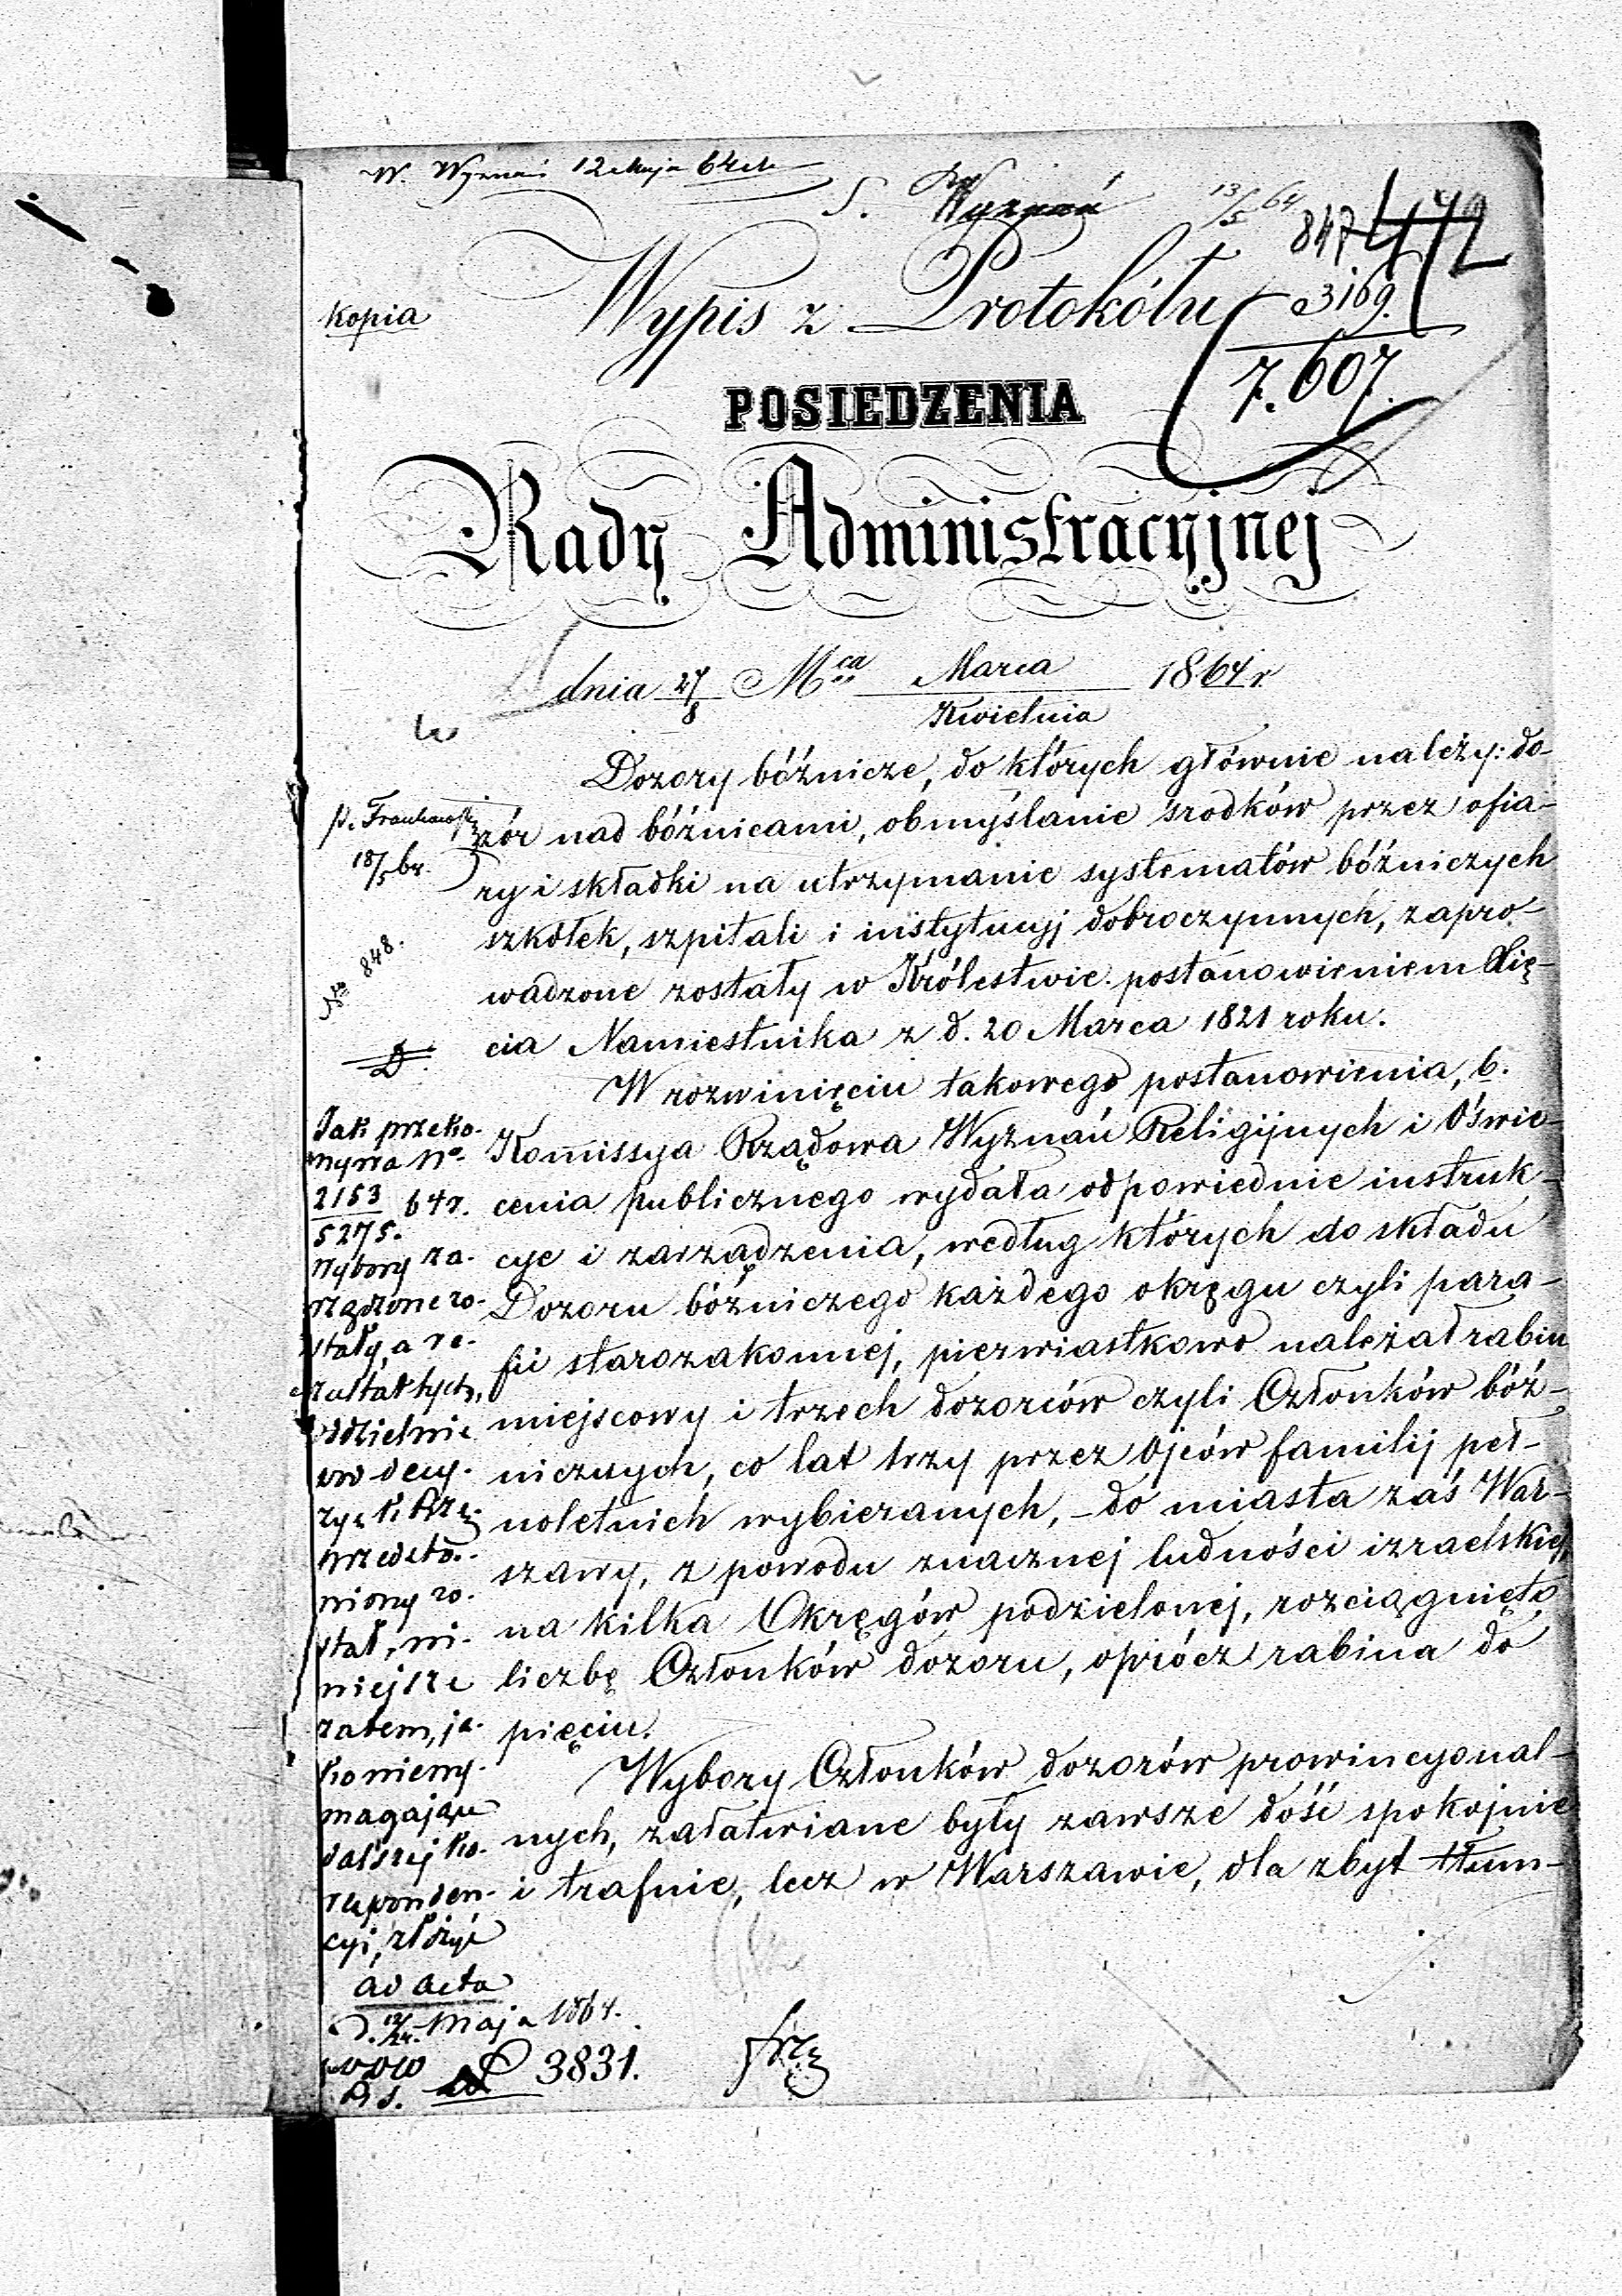 W. Wyznań 12 Maja 64
S. Wyznań 13/5 64
847
3169.
7.607.
kopia
Wypis z Protokółu
POSIEDZENIA
Rady Administracyjnej
dnia 27/8 Mca Marca/Kwietnia 1864 r.
Dozory bóźnicze, do których głównie należy: do-
zór nad bóżnicami, obmyślanie środków przez ofia-
ry i składki na utrzymanie systematów bóźniczych
szkółek, szpitali i instytucyj dobroczynnych, zapro-
wadzone zostały w Królestwie postanowieniem Xię-
cia Namiestnika z d. 20 Marca 1821 roku.
W rozwinięciu takowego postanowienia, b.
Kommissya Rządowa Wyznań Religijnych i Oświe-
cenia publicznego wydała odpowiednie instruk-
cye i zarządzenia, według których do składu
Dozoru bóźniczego każdego okręgu czyli para-
fii starozakonnej, pierwiastkowo należał rabin
miejscowy i trzech dozorców czyli Członków bóź-
niczych, co lat trzy przez Ojców familij peł-
noletnich wybieranych, - do miasta zaś War-
szawy, z powodu znacznej ludności izraelskiej
na kilka Okręgów podzielonej, rozciągnięto
liczbę Członków dozoru, oprócz rabina do
pięciu.
Wybory Członków dozorów prowincyonal-
nych, załatwiane były zawsze dość spokojnie
i trafnie, lecz w Warszawie, dla zbyt tłum-
18/5 br.
No 848.
Jak przeko-
nywa No
2153/5275. 64 r.
wybory za-
rządzone zo-
stały, a re-
zultat tych,
oddzielnie
niony zo-
stał, ni-
niejsze
zatem, ja-
ko niewy-
magające
dalszej ko-
responden-
cyi, złożyć
ad acta
d. 12/24 Maja 1864.
3831.